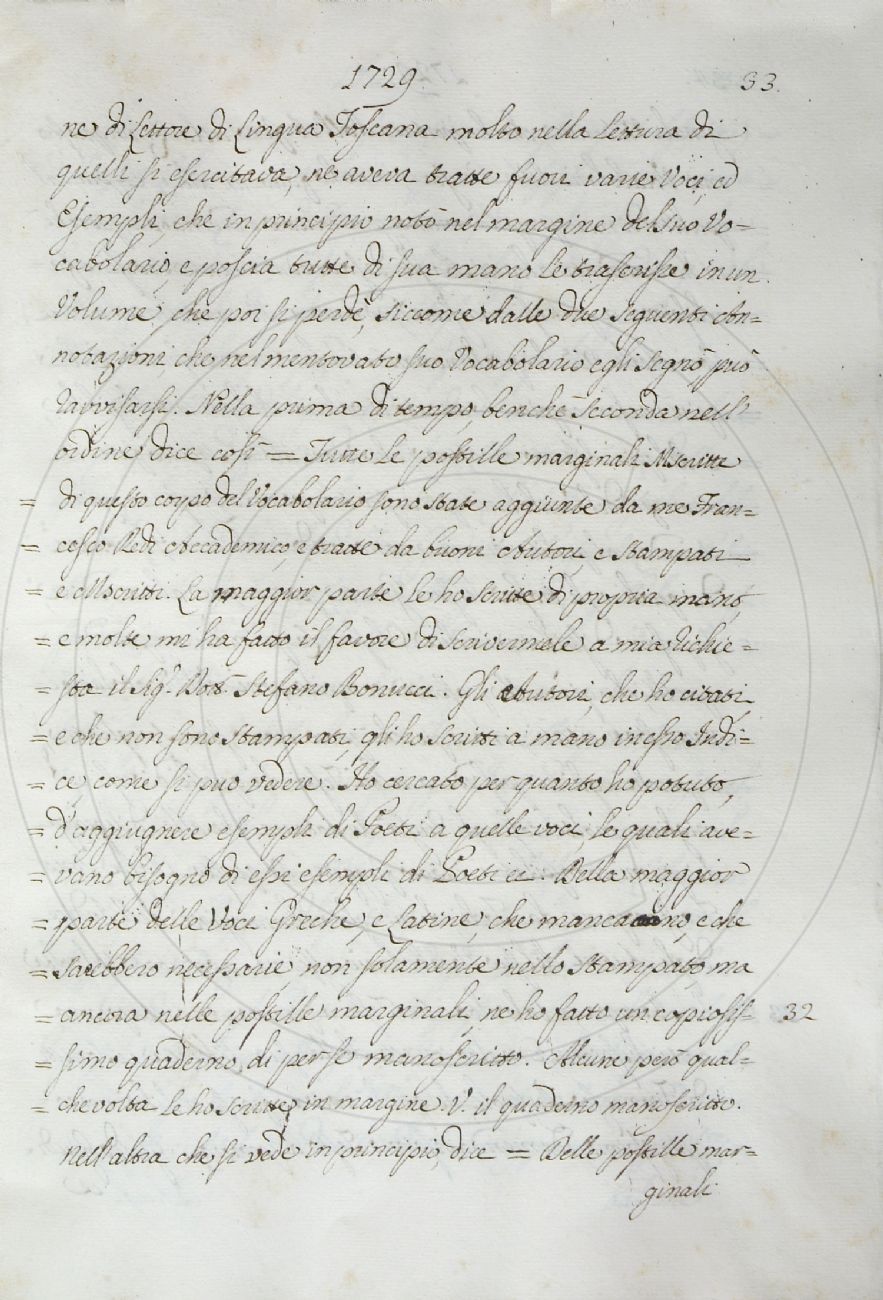 1729.
33.
ne di Lettore di Lingua Toscana molto nella Lettura di
quelli si esercitava, ne aveva tratte fuori varie Voci, ed
Esempli, che in principio notò nel margine del suo Vo=
cabolario, e poscia tutte di sua mano le trascrisse in un
Volume, che poi si perdè, siccome dalle due seguenti An=
notazioni che nel mentovato suo Vocabolario egli segnò, può
ravvisarsi. Nella prima di tempo, benchè seconda nell'
ordine dice così = Tutte le postille marginali Mscritte
= di questo corpo del Vocabolario sono state aggiunte da me Fran=
= cesco Redi Accademico, e tratte da buoni Autori, e stampati
= e Mscritti. La maggior parte le ho scritte di propria mano,
= e molte mi ha fatto il favore di scrivermele a mia richie=
= sta il Sig.r Dott. Stefano Bonucci. Gli Autori, che ho citati,
= e che non sono stampati, gli ho scritti a mano in esso Indi=
= ce, come si può vedere. Ho cercato per quanto ho potuto,
= d'aggiugnere esempli di Poeti a quelle voci, le quali ave=
= vano bisogno di essi esempli di Poeti ec. Della maggior
= parte delle Voci Greche, e Latine, che mancano, e che
= sarebbero necessarie, non solamente nello stampato, ma
= ancora nelle postille marginali, ne ho fatto un copiosis=
32
= simo quaderno di per se manoscritto. Alcune però qual=
= che volta le ho scritte in margine. V. il quaderno manoscritto.
Nell'altra che si vede in principio, dice = Delle postille mar=
ginali